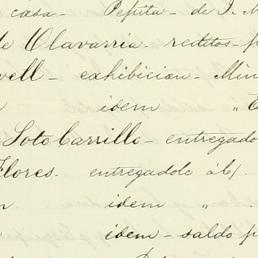 casa — Pepita — de J. M
de Olavarria — reditos — p
well — exhibicion — Min
idem "
Soto Carrillo — entregado
Flores. entregadole á l/.
idem "
idem — saldo p